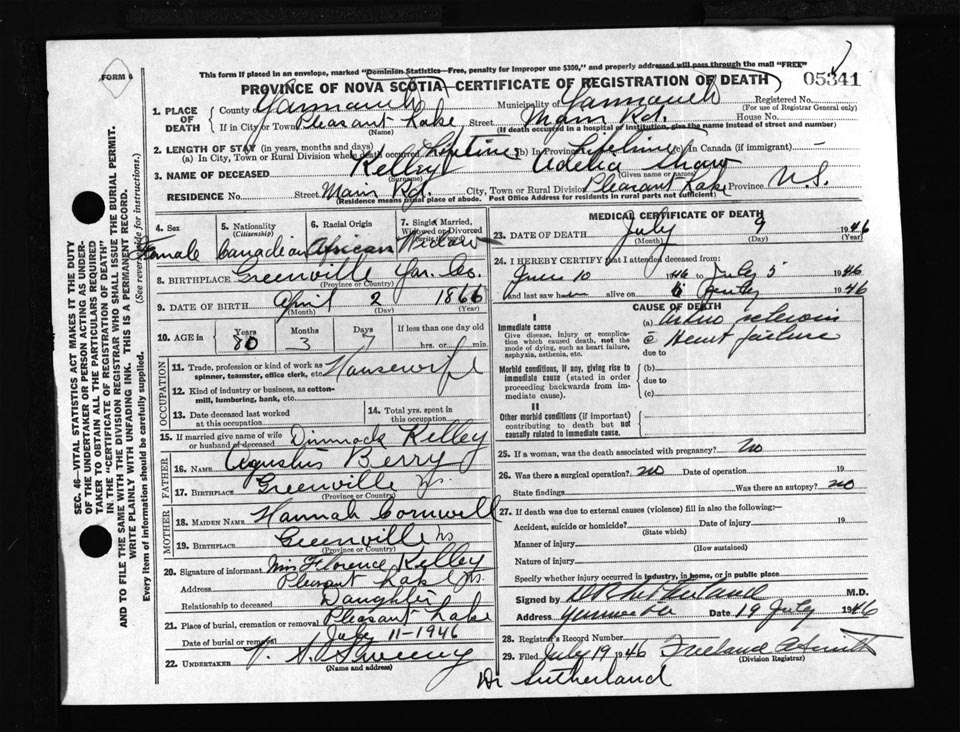 FORM 6
This form if placed in an envelope, marked "Dominion Statistics—Free, penalty for improper use $300," and properly addressed will pass through the mail "FREE"
PROVINCE OF NOVA SCOTIA—CERTIFICATE OF REGISTRATION OF DEATH
05341
1. PLACE OF DEATH County Yarmouth Municipality of Yarmouth Registered No.
(For use of Registrar General only)
If in City or Town Pleasant Lake Street Main Rd. House No.
(Name) (If death occurred in a hospital or institution, give the name instead of street and number)
2. LENGTH OF STAY (in years, months and days)
(a) In City, Town or Rural Division where death occurred Lifetime (b) In Province Lifetime (c) In Canada (if immigrant) —
3. NAME OF DECEASED Kelley Adelia Shaw
(Surname) (Given name or names)
RESIDENCE No. Street Main Rd. City, Town or Rural Division Pleasant Lake Province N.S.
(Residence means usual place of abode. Post Office Address for residents in rural parts not sufficient)
4. Sex 5. Nationality (Citizenship) 6. Racial Origin 7. Single, Married, Widowed or Divorced (write the word)
Female Canadian African Widow
8. BIRTHPLACE Greenville Yar. Co.
(Province or Country)
9. DATE OF BIRTH April 2 1866
(Month) (Day) (Year)
10. AGE in Years Months Days If less than one day old
80 3 7 hrs. or min.
OCCUPATION
11. Trade, profession or kind of work as spinner, teamster, office clerk, etc. Housewife
12. Kind of industry or business, as cotton-mill, lumbering, bank, etc.
13. Date deceased last worked at this occupation
14. Total yrs. spent in this occupation
15. If married give name of wife or husband of deceased Dimmock Kelley
FATHER
16. NAME Agustus Berry
17. BIRTHPLACE Greenville N.S.
(Province or Country)
MOTHER
18. MAIDEN NAME Hannah Cornwell
19. BIRTHPLACE Greenville N.S.
(Province or Country)
20. Signature of informant Florence Kelley
Address Pleasant Lake N.S.
Relationship to deceased Daughter
21. Place of burial, cremation or removal Pleasant Lake
Date of burial or removal July 11-1946
22. UNDERTAKER V. S. Sweeny
(Name and address)
MEDICAL CERTIFICATE OF DEATH
23. DATE OF DEATH July 9 1946
(Month) (Day) (Year)
24. I HEREBY CERTIFY that I attended deceased from:
June 10 1946 to July 5 1946
and last saw h alive on July 1946
CAUSE OF DEATH
I
Immediate cause (a) Arterio sclerosis
Give disease, injury or complication which caused death, not the mode of dying, such as heart failure, asphyxia, asthenia, etc.
c̄ Heart failure
due to
Morbid conditions, if any, giving rise to immediate cause (stated in order proceeding backwards from immediate cause).
(b)
due to
(c)
II
Other morbid conditions (if important) contributing to death but not causally related to immediate cause.
25. If a woman, was the death associated with pregnancy? No
26. Was there a surgical operation? No Date of operation 19
State findings Was there an autopsy? No
27. If death was due to external causes (violence) fill in also the following:—
Accident, suicide or homicide? Date of injury 19
(State which)
Manner of injury
(How sustained)
Nature of injury
Specify whether injury occurred in industry, in home, or in public place
Signed by Sutherland M.D.
Address Yarmouth Date 19 July 1946
28. Registrar's Record Number
29. Filed July 19 1946 Freeland A Smith
(Division Registrar)
Dr Sutherland
SEC. 46—VITAL STATISTICS ACT MAKES IT THE DUTY
OF THE UNDERTAKER OR PERSON ACTING AS UNDER-
TAKER TO OBTAIN ALL THE PARTICULARS REQUIRED
IN THE "CERTIFICATE OF REGISTRATION OF DEATH"
AND TO FILE THE SAME WITH THE DIVISION REGISTRAR WHO SHALL ISSUE THE BURIAL PERMIT.
WRITE PLAINLY WITH UNFADING INK. THIS IS A PERMANENT RECORD.
Every item of information should be carefully supplied. (See reverse side for instructions.)